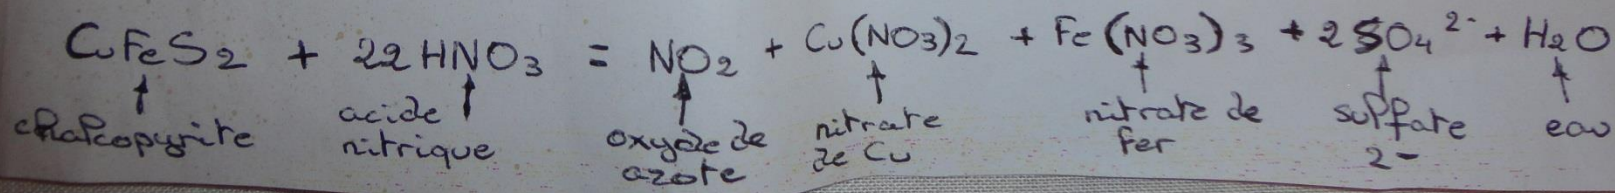 CuFeS2 + 22HNO3 = NO2 + Cu(NO3)2 + Fe(NO3)3 + 2SO4 2- + H2O
chalcopyrite
acide
nitrique
oxyde de
azote
nitrate
de Cu
nitrate de
fer
sulfate
2-
eau